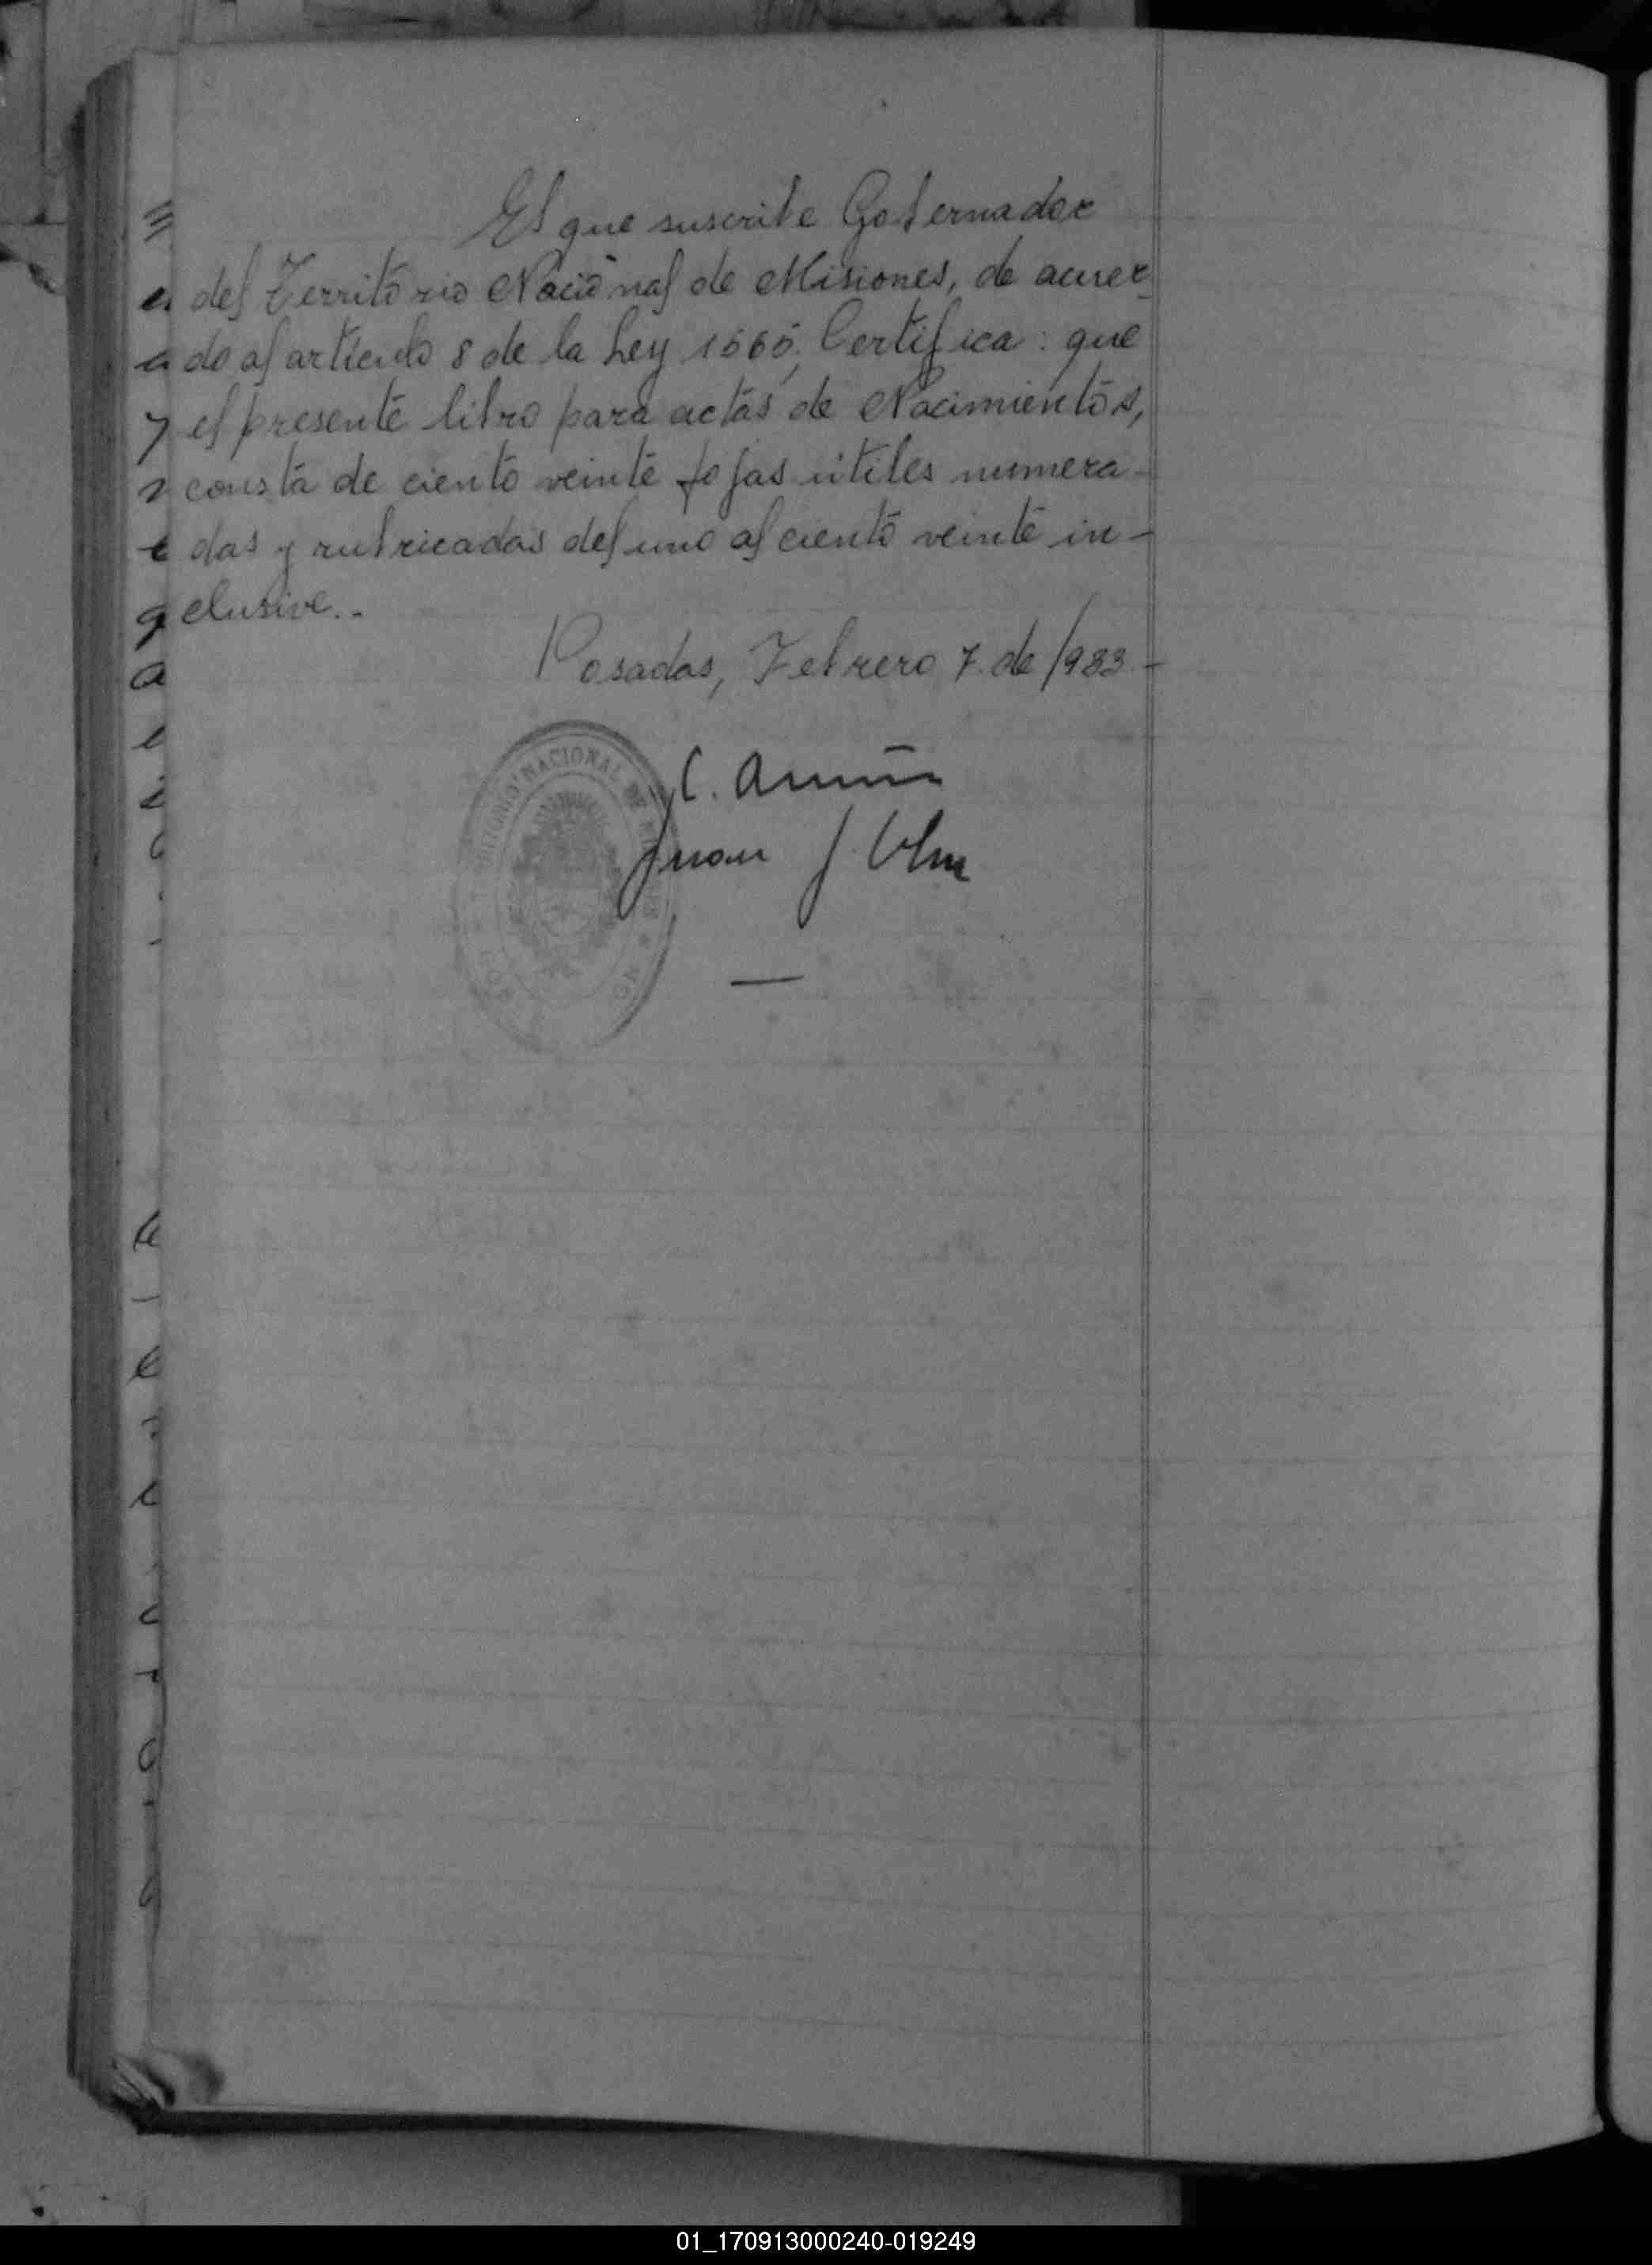 El que suscribe Gobernador
del Territorio Nacional de Misiones, de acuer
do al artículo 8 de la Ley 1565, Certifica: que
el presente libro para actas de Nacimientos,
consta de ciento veinte fojas útiles numera-
das y rubricadas del uno al ciento veinte in-
clusive.-
Posadas, Febrero 7. de 1933.-
TERRITORIO NACIONAL DE MISIONES
C. Acuña
Juan J.
01_170913000240-019249